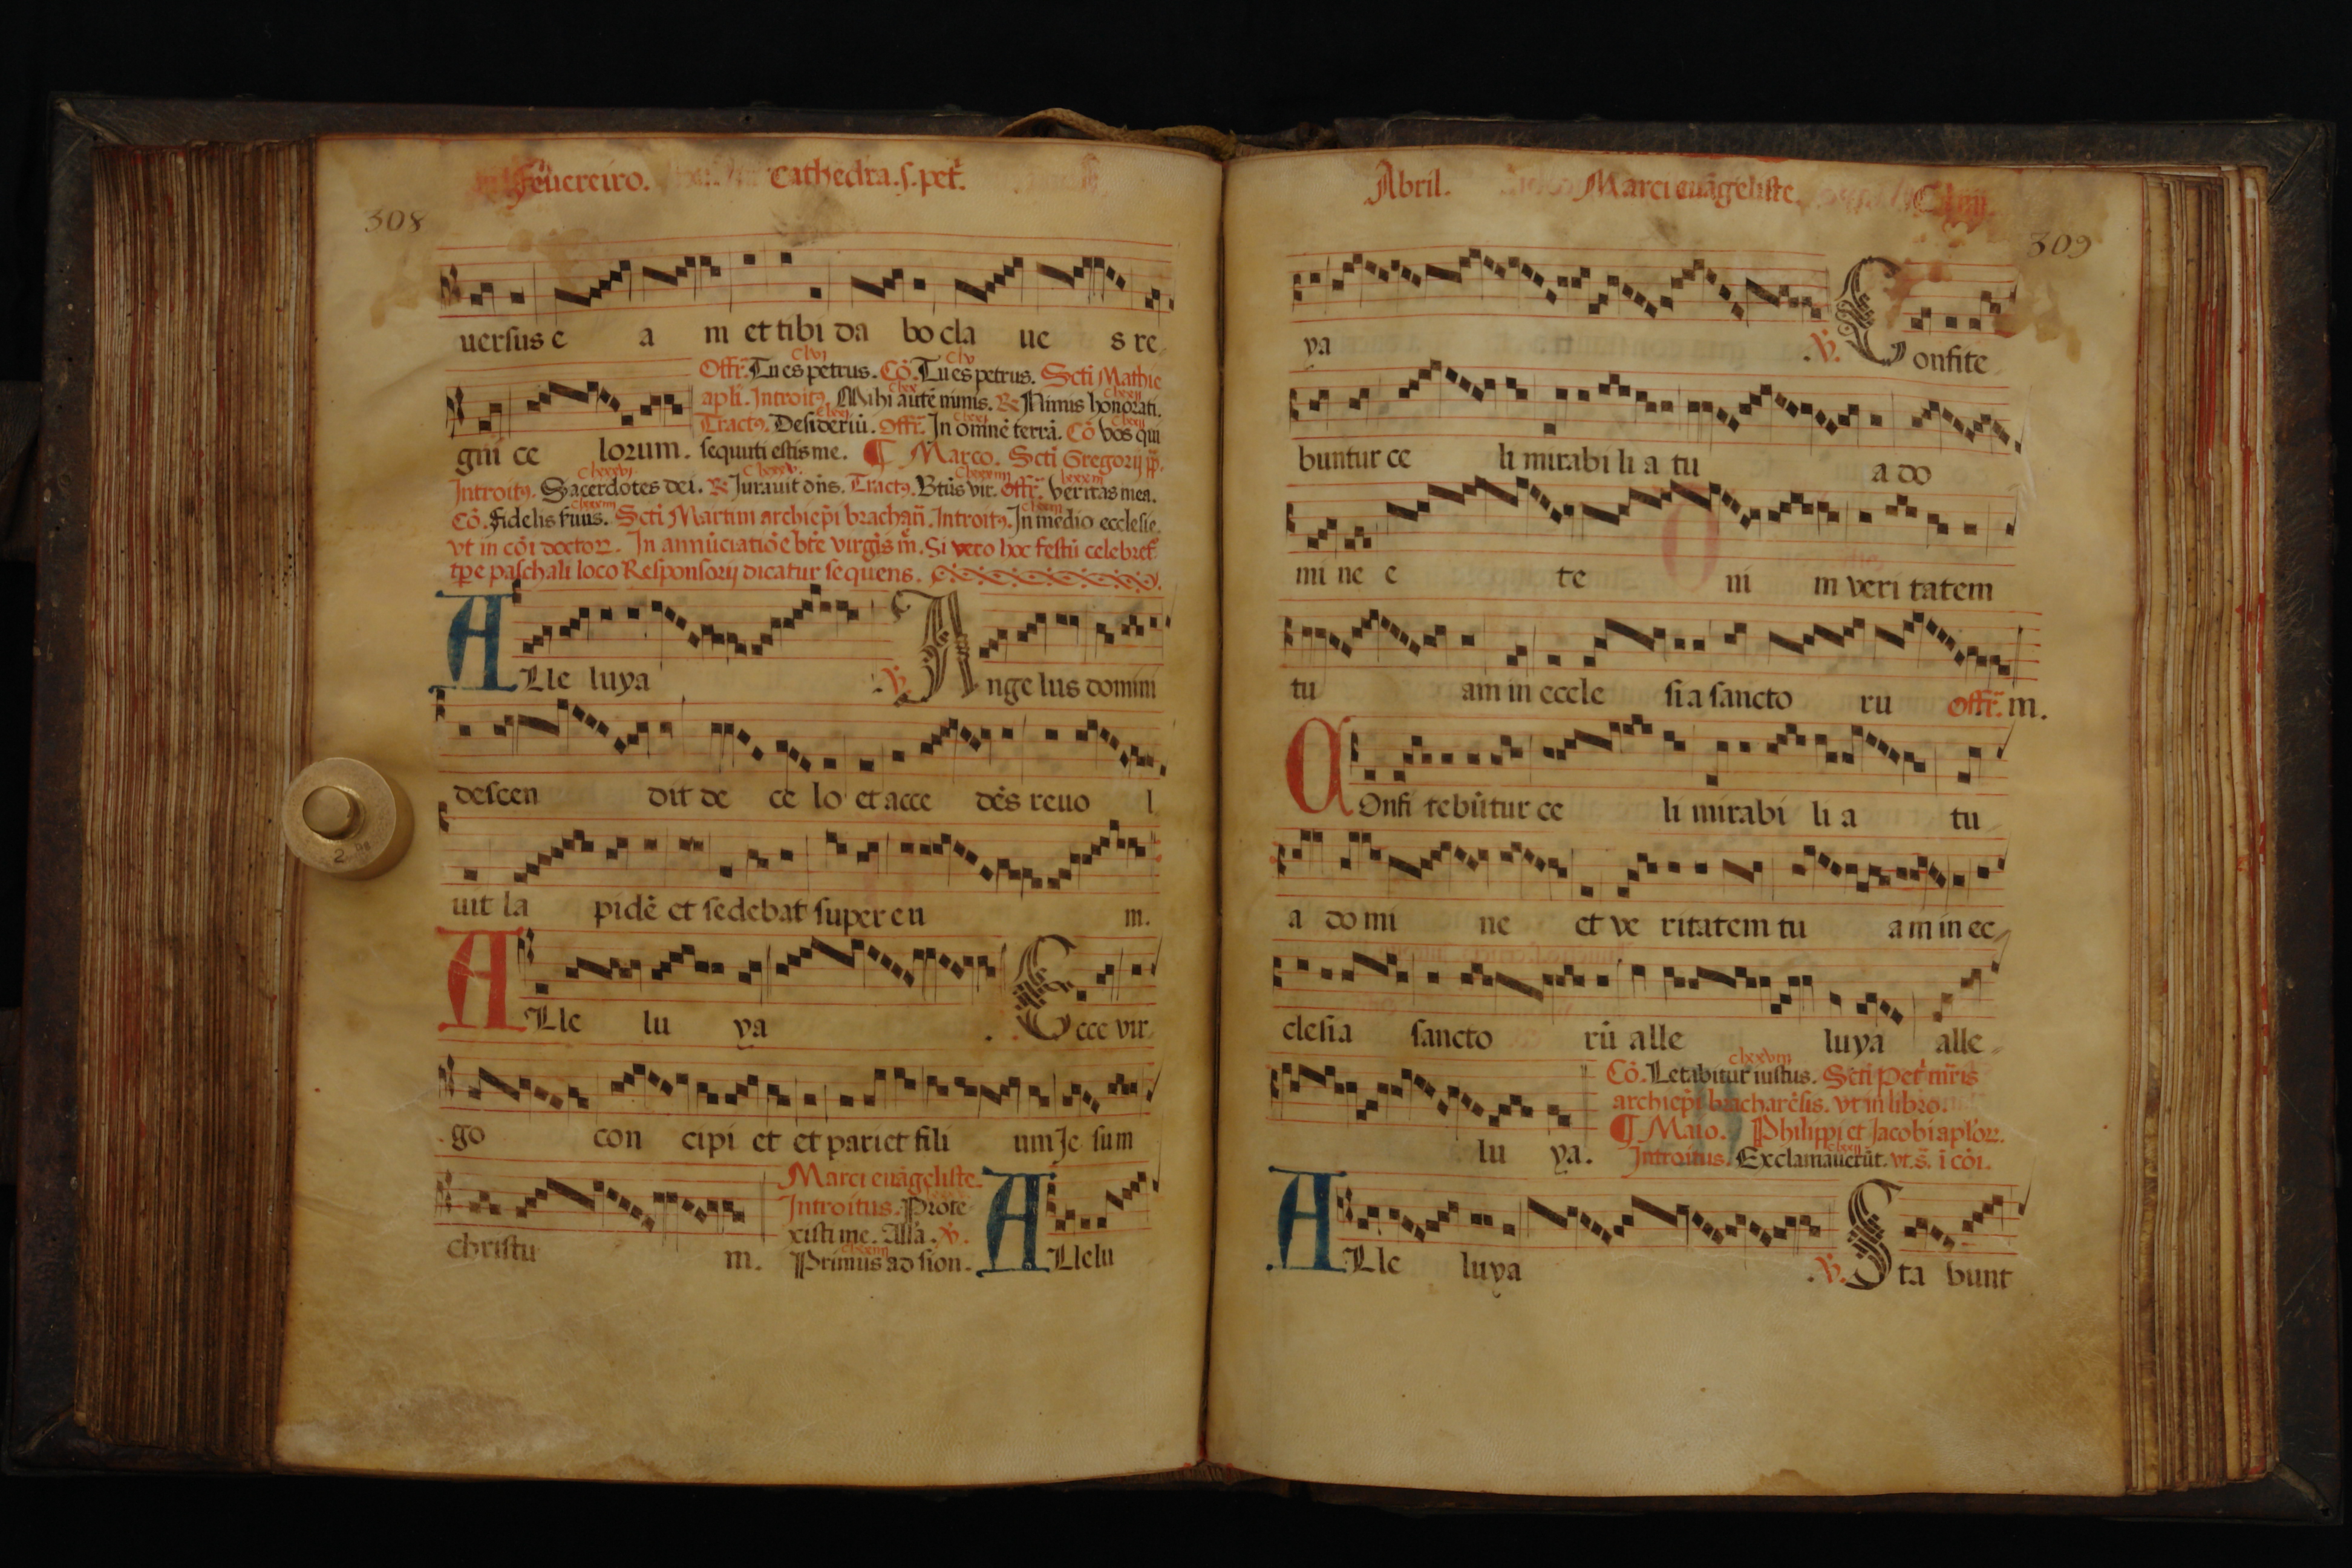 Feuereiro. Cathedra. s. pet̃.
308
uersus e a m et tibi da bo cla ue s re
clvj clv
Offr̃. Tu es petrus. Cõ. Tu es petrus. Scti Mathie
apl̃i. Introitꝰ. Mihi autẽ nimis. ℞ Nimis honorati.
Tractꝰ. Desideriũ. Offr̃. In omnẽ terrã. Cõ Vos qui
gni ce lorum. sequuti estis me. ¶ Marco. Scti Gregorij pp̃.
Introitꝰ. Sacerdotes dei. ℞ Jurauit dñs. Tractꝰ. Btũs vir. Offr̃. Veritas mea.
Cõ. Fidelis seruus. Scti Martini archiep̃i brachar̃. Introitꝰ. In medio ecclesie.
vt in cõi doctoꝝ. In annũciatiõe bte virgĩs m̃. Si vero hoc festũ celebret̃
tp̃e paschali loco Responsorij dicatur sequens.
ALle luya . ℣. Ange lus domini
descen dit de ce lo et acce dẽs reuo l
uit la pidẽ et sedebat super eu m.
ALle lu ya . Ecce vir
go con cipi et et pariet fili um Je sum
Marci euãgeliste.
Introitus. Prote
xisti me. Alľa. ℣.
christu m. Primus ad sion. ALlelu
Abril. Marci euãgeliste.
309
ya .℣. Confite
buntur ce li mirabi li a tu a do
mi ne e te ni m veri tatem
tu am in eccle si a sancto ru Offr̃. m.
COnfi tebũtur ce li mirabi li a tu
a do mi ne et ve ritatem tu am in ec
clesia sancto rũ alle luya alle
clxxviij
Cõ. Letabitur iustus. Scti Pet̃ mr̃is
archiep̃i bracharẽsis. vt in libro.
¶ Maio. Philippi et Jacobi apľoꝝ.
lu ya. Introitus. Exclamauerũt. vt. s̃. ĩ cõi.
ALle luya .℣. Sta bunt